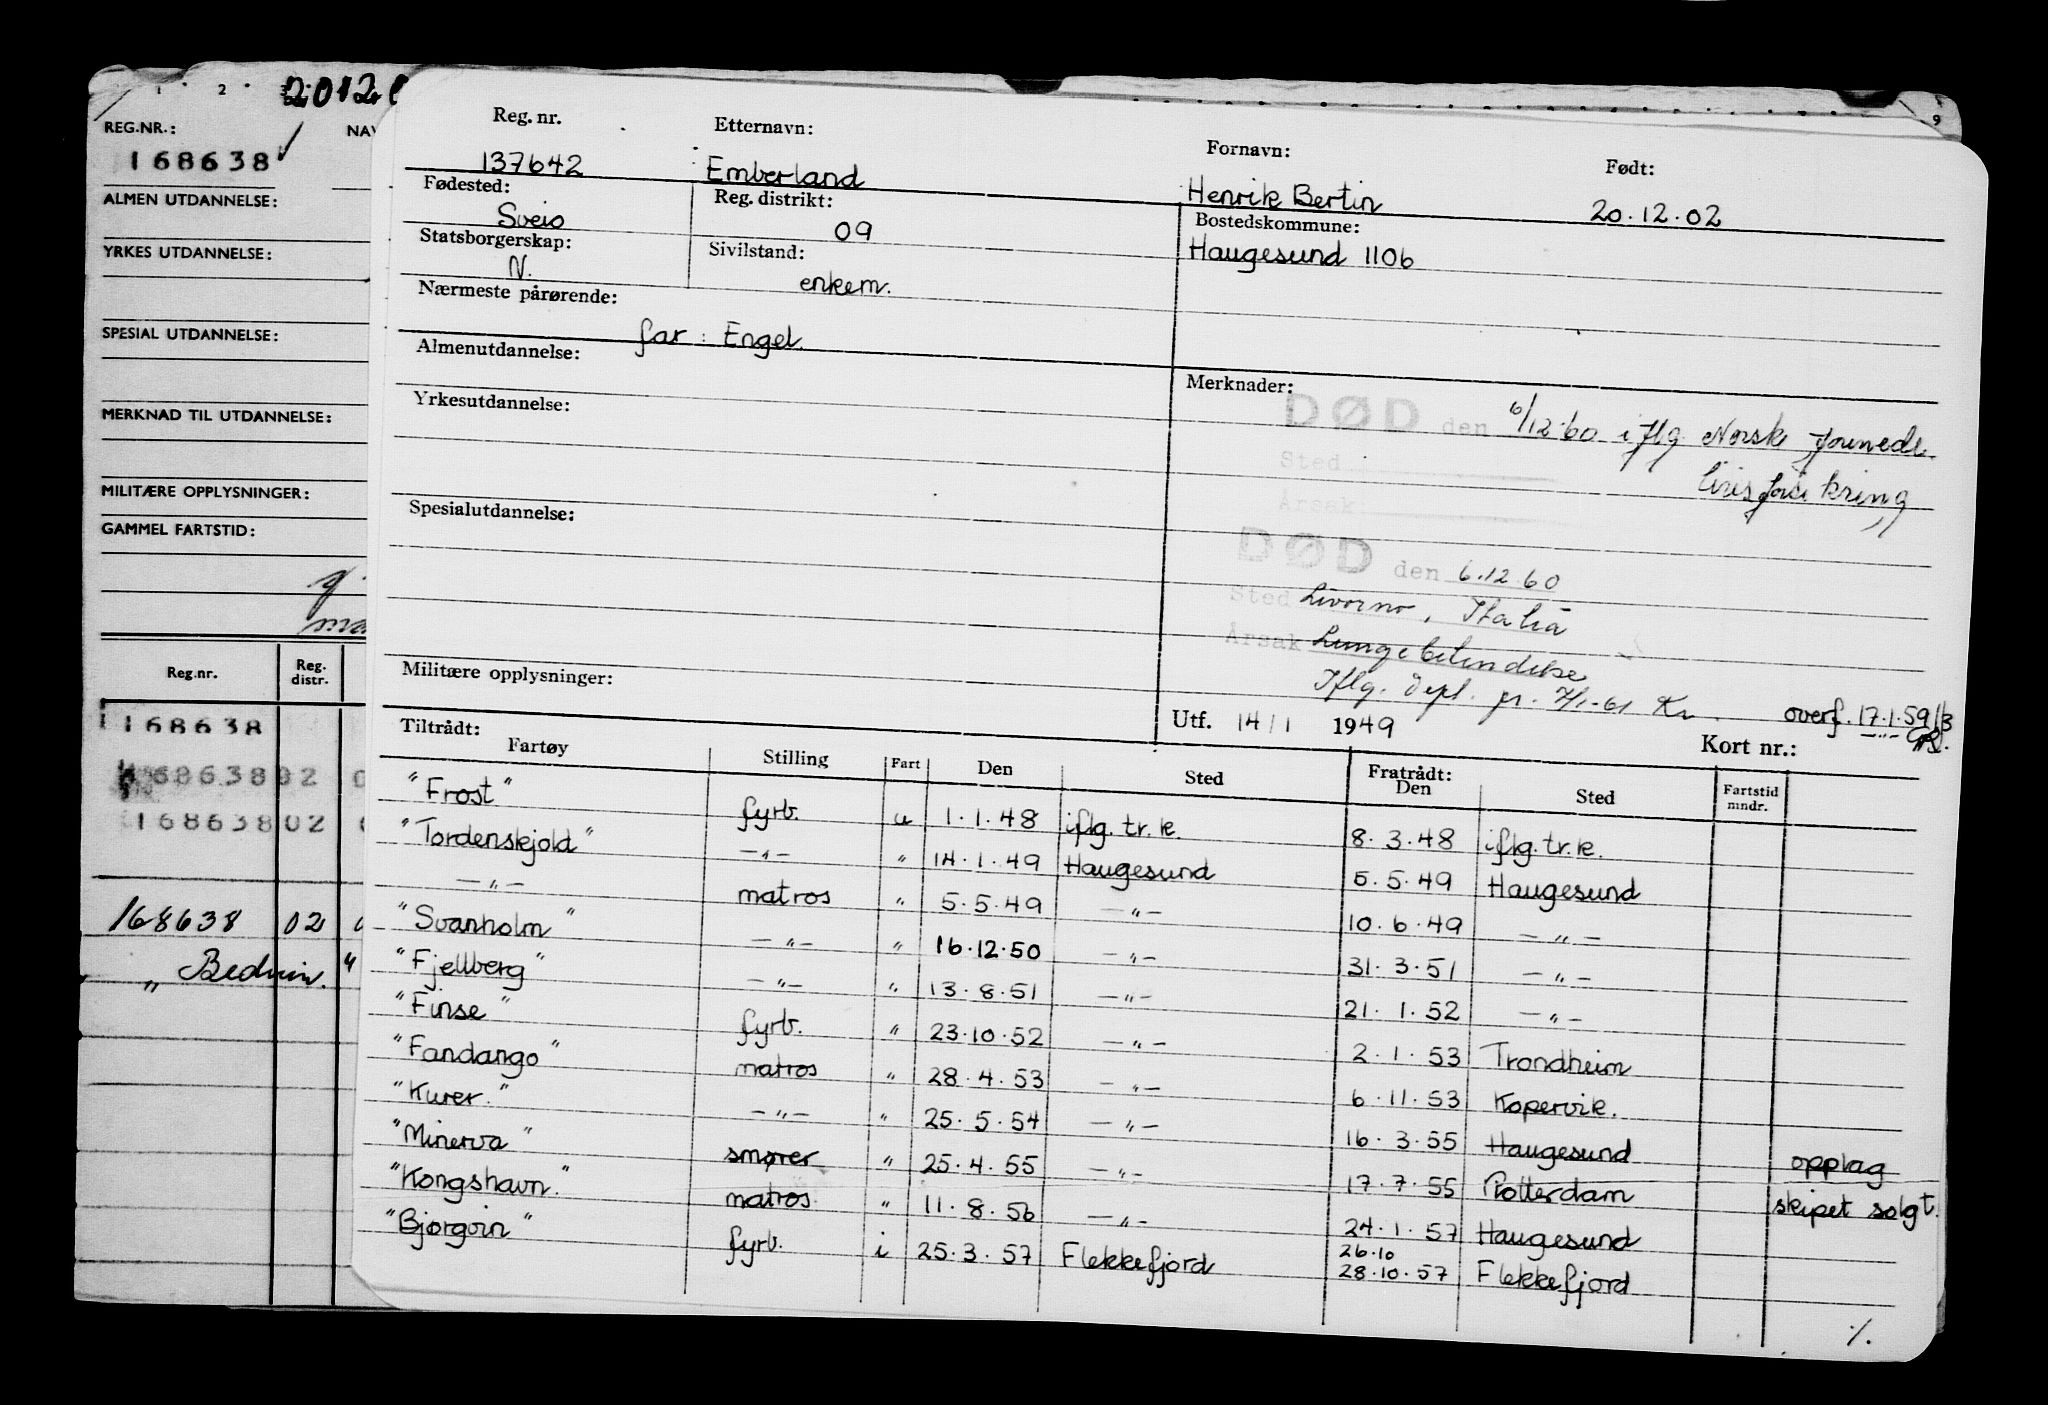 1 2 2012
REG.NR.:
168638
ALMEN UTDANNELSE:
YRKES UTDANNELSE:
SPESIAL UTDANNELSE:
MERKNAD TIL UTDANNELSE:
MILITÆRE OPPLYSNINGER:
GAMMEL FARTSTID:
Reg.nr. Reg. distr.
168638
6863802
16863802
168638 02
" Bedvin. "
9
Reg. nr. Etternavn: Fornavn: Født:
137642 Emberland Henrik Bertin 20.12.02
Fødested: Reg. distrikt: Bostedskommune:
Sveio 09 Haugesund 1106
Statsborgerskap: Sivilstand:
N. enkem.
Nærmeste pårørende:
far: Engel.
Almenutdannelse:
Merknader:
Yrkesutdannelse:
DØD den 6/12.60 iflg. Norsk
Sted
Årsak:
Spesialutdannelse:
DØD den 6.12.60
Sted Livorno, Italia
Årsak Lungebetendelse
Militære opplysninger:
Iflg. dept. pr. 7/1-61 Kr.
overf. 17.1.59
Utf. 14/1 1949
Kort nr.:
Tiltrådt: Fratrådt:
Fartøy Stilling Fart Den Sted Den Sted Fartstid mndr.
"Frost" fyrb. u 1.1.48 iflg. tr.k. 8.3.48 iflg. tr.k.
"Tordenskjold" —"— " 14.1.49 Haugesund 5.5.49 Haugesund
—"— matros " 5.5.49 —"— 10.6.49 —"—
"Svanholm" —"— " 16.12.50 —"— 31.3.51 —"—
"Fjellberg" —"— " 13.8.51 —"— 21.1.52 —"—
"Finse" fyrb. " 23.10.52 —"— 2.1.53 Trondheim
"Fandango" matros " 28.4.53 —"— 6.11.53 Kopervik.
"Kurer." —"— " 25.5.54 —"— 16.3.55 Haugesund opplag
"Minerva" smører " 25.4.55 —"— 17.7.55 Rotterdam skipet solgt.
"Kongshavn." matros " 11.8.56 —"— 24.1.57 Haugesund
"Bjørgvin" fyrb. i 25.3.57 Flekkefjord 26.10 28.10.57 Flekkefjord
%.